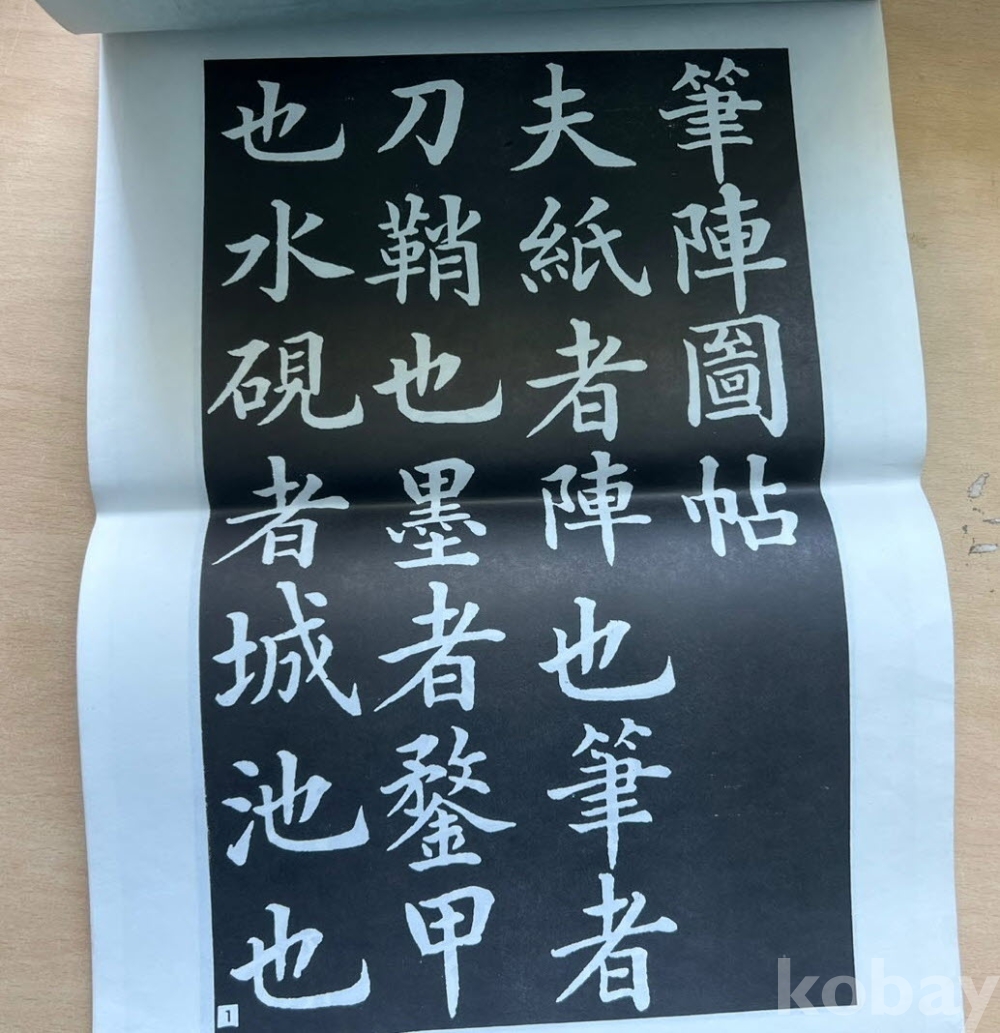 筆陣圖帖
夫紙者陣也筆者
刀鞘也墨者鍪甲
也水硯者城池也
1
kobay